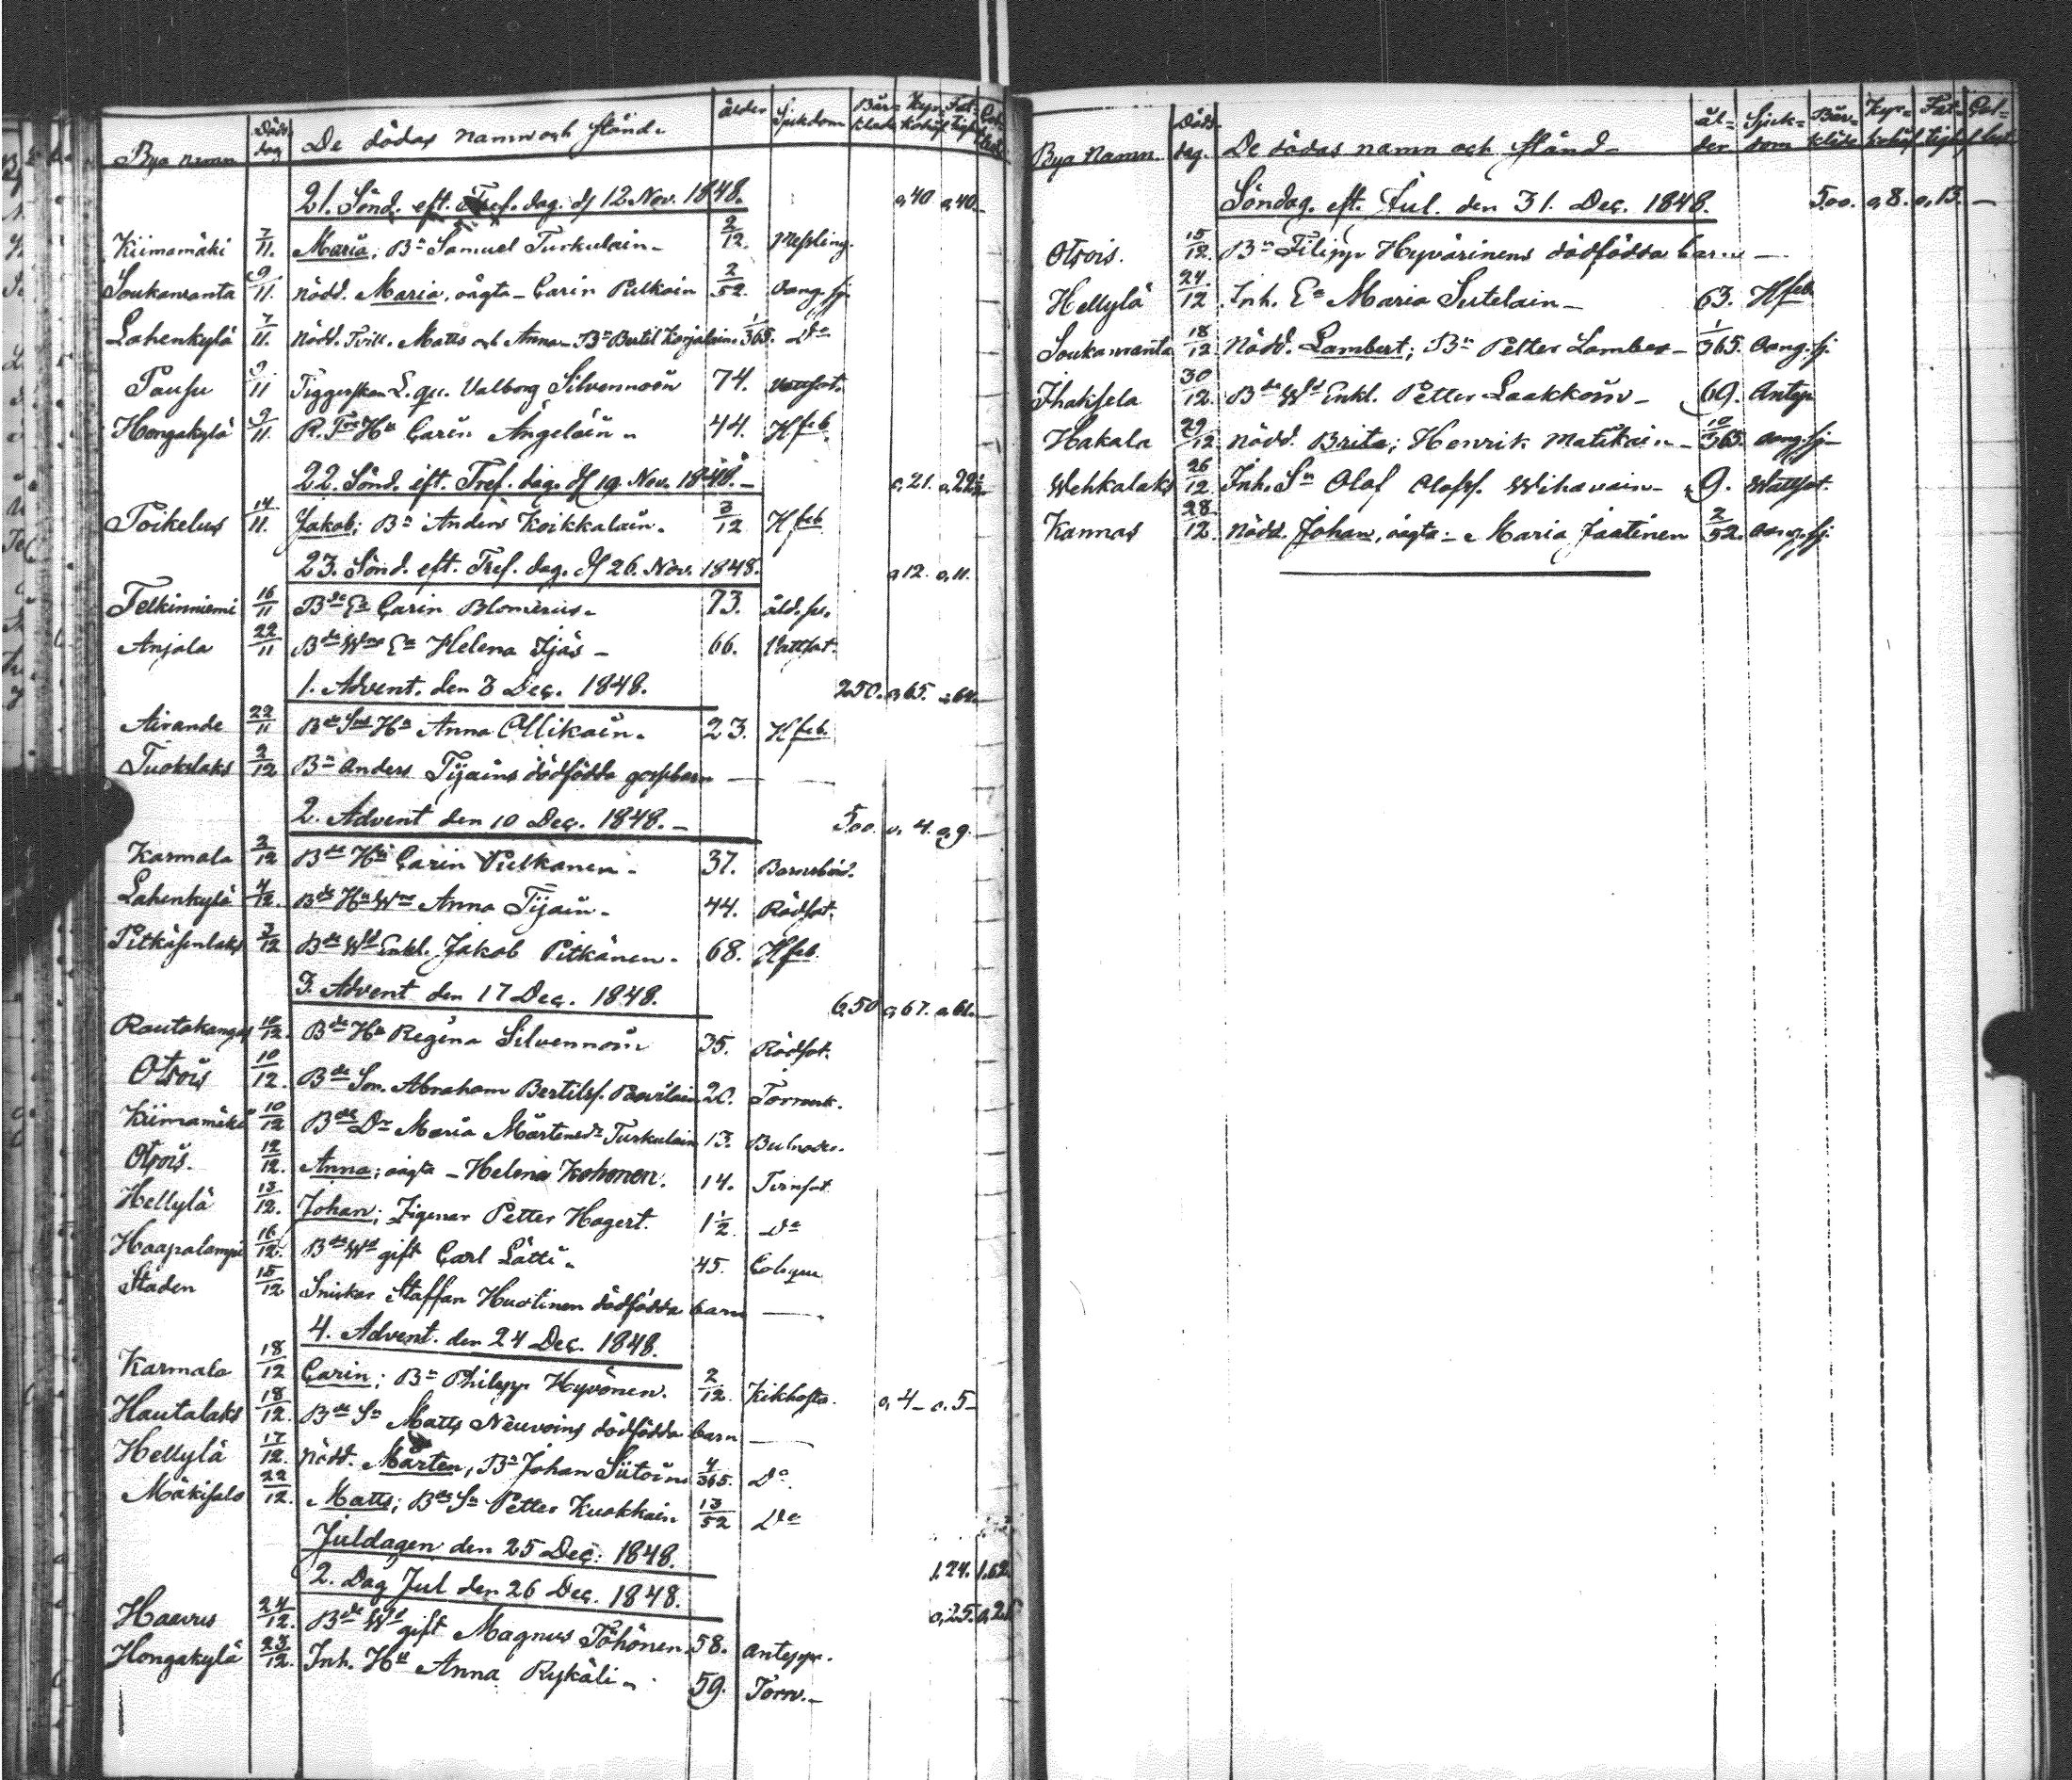 Bya namn Död. dag De dödas namn och stånd. ålder Sjukdom Bår-kläde Kyr-kohåf Fat-tighåf
21. Sönd. eft. Tref. dag. d/ 12 Nov. 1848. 0,40 0,40
Kiimamäki 7/11. Maria; Bn Samuel Turkulain 2/12. Messling.
Soukanranta 9/11. nödd. Maria, oägta Carin Pulkain 2/52. Aang. sj.
Lahenkylä 7/11. nödd. Tvill. Matts och Anna Bn Bertil Korjalain 1/365. Do
Pausu 9/11 Tiggerskan L. qv. Valborg Silvennoin 74. Vattsot.
Hongakylä 9/11. R. Hu Carin Ängeläin 44. H feb
22. Sönd. eft. Tref. dag. d/ 19. Nov. 1848. 0,21. 0,22½
Toikelus 14/11. Jakob; Bn Anders Koikkalain. 3/12 H feb
23. Sönd. eft. Tref. dag. d/ 26. Nov. 1848. 0,12. 0,11.
Telkinniemi 16/11 Bde Ea Carin Blomerus 73. åld. sv.
Anjala 22/11 Bde Wns Ea Helena Ijäs 66. Vattsot.
1. Advent. den 3 Dec. 1848. 2.50. 0,65. 0,64.
Airande 22/11 Bde Sns Hu Anna Ollikain. 23. H feb.
Tuokslaks 2/12 Bn Anders Tijains dödfödda gossbarn —
2. Advent den 10 Dec. 1848. 5,00. 0,4. 0,9.
Karmala 3/12 Bde Hu Carin Pulkanen 37. Barnsbörd.
Lahenkylä 4/12. Bde Hu Wns Anna Tijain 44. Rödsot.
Pitkäsenlaks 3/12 Bde Wd Enkl. Jakob Pitkänen. 68. H feb.
3. Advent den 17 Dec. 1848. 6,50 0,67. 0,61.
Rautakangas 10/12. Bde Hu Regina Silvennoin 35. Rödsot.
Otsois 10/12. Bde Son. Abraham Bertilss. Paavilain 20. Torrverk.
Kiimamäki 10/12 Bde Dr Maria Mårtensdr Turkulain 13. Bulnader.
Otsois. 12/12. Anna; oägta Helena Kohonen. 14. Tvinsot
Hellylä 13/12. Johan; Zigenar Petter Hagert. 1½ Do
Haapalampi 16/12. Bde Wd gift Carl Lätti. 45. Colique
Staden 15/12 Snickar Staffan Huotinen dödfödda barn —
4. Advent. den 24 Dec. 1848.
Karmala 18/12 Carin; Bn Philipp Hyvönen. 2/12. Kikhosta. 0,4 0,5
Hautalaks 18/12. Bde Sn Matts Neuvoins dödfödda barn —
Hellylä 17/12. nödd. Mårten, Bn Johan Siitoin 4/365. Do.
Mäkisalo 22/12. Matts; Bde Sn Petter Kuokkain 13/52 Do
Juldagen den 25 Dec. 1848. 1.24. 1,62
2. Dag Jul den 26 Dec. 1848. 0,25. 0,2
Haavus 24/12. Bde Wd gift Magnus Pöhönen 58. Anteppr.
Hongakylä 23/12. Inh. Hu Anna Rykäli 59. Torrv.
Bya Namn. Död. dag. De dödas namn och stånd ål-der Sjuk-dom Bår-kläde Kyr-kohåf Fat-tighåf
Söndag. eft. Jul. den 31. Dec. 1848. 5,00. 0,8. 0,13. —
Otsois. 15/12. Bn Filipp Hyvärinens dödfödda barn —
Hellylä 24/12 Inh. Ea Maria Sutelain 63. H feb
Soukanranta 18/12 Nödd. Lambert; Bn Petter Lamber 1/365. Aang. sj.
Ihaksela 30/12. Bde Wd Enkl. Petter Laakkoin 69. Antepp
Hakala 29/12 nödd. Brita; Henrik Matikain 10/365. aang. sj
Wehkalaks 26/12. Inh. Sn Olof Olofss. Wihavain 9. Wattsot.
Kannas 28/12. nödd. Johan, oägta; Maria Jaatinen 2/52. aang. sj.